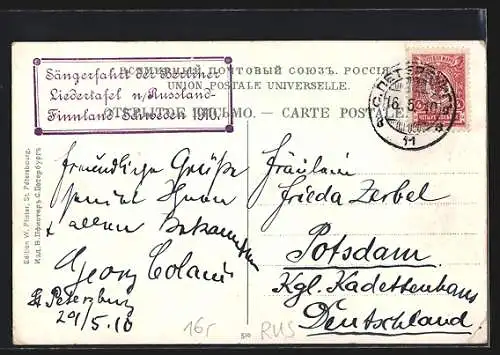 ВСЕМИРНЫЙ ПОЧТОВЫЙ СОЮЗЪ. РОССІЯ
UNION POSTALE UNIVERSELLE.
ОТКРЫТОЕ ПИСЬМО. — CARTE POSTALE.
Sängerfahrt der Berliner
Liedertafel n/Russland-
Finnland Schweden 1910.
С.ПЕТЕРБУРГЪ
16.5.10
11
freundliche Grüße
Ihnen
+ allen Bekannten
Georg Colani
St Petersburg
29/5.10
Fräulein
Frieda Zerbel
Potsdam
Kgl. Kadettenhaus
Deutschland
Edition W. Pfister, St. Pétersbourg.
Изд. В. Пфистеръ С. Петербургъ
16r
RUS